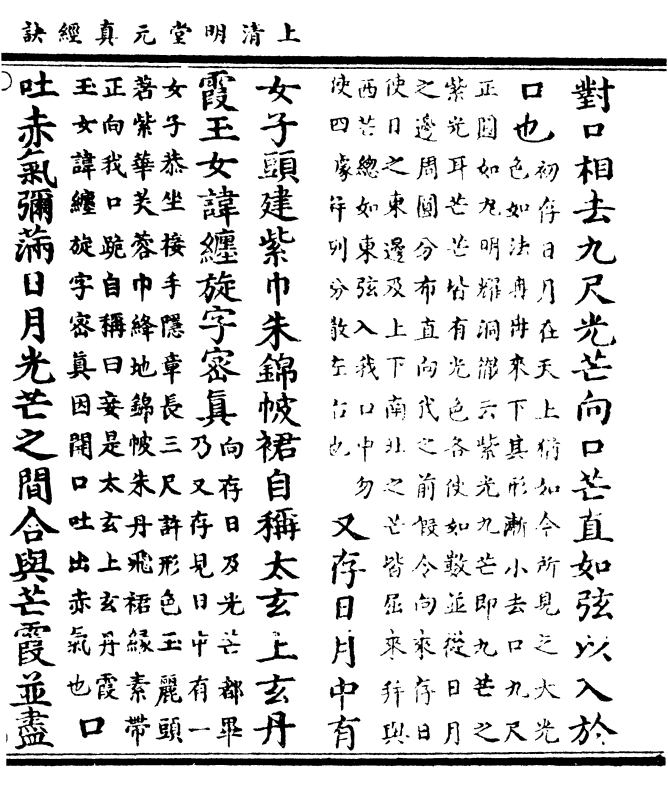 上清明堂元真經訣
對口相去九尺光芒向口芒直如弦以入於
口也
初存日月在天上猶如今所見之大光
色如法冉冉來下其形漸小去口九尺
正圓如丸明耀洞澈云紫光九芒即九芒之
紫光耳芒芒皆有光色各使如數並從日月
之邊周圓分布直向我之前假令向來存日
使日之東邊及上下南北之芒皆屈來并與
西芒總如東弦入我口中勿
使四處并列分散左右也
又存日月中有
女子頭建紫巾朱錦帔裙自稱太玄上玄丹
霞玉女諱纏旋字密真
向存日及光芒都畢
乃又存見日中有一
女子恭坐接手隱章長三尺許形色玉麗頭
著紫華芙蓉巾絳地錦帔朱丹飛裙緣素帶
正向我口跪自稱曰妾是太玄上玄丹霞
玉女諱纏旋字密真因開口吐出赤氣也
口
吐赤氣彌滿日月光芒之間合與芒霞並盡